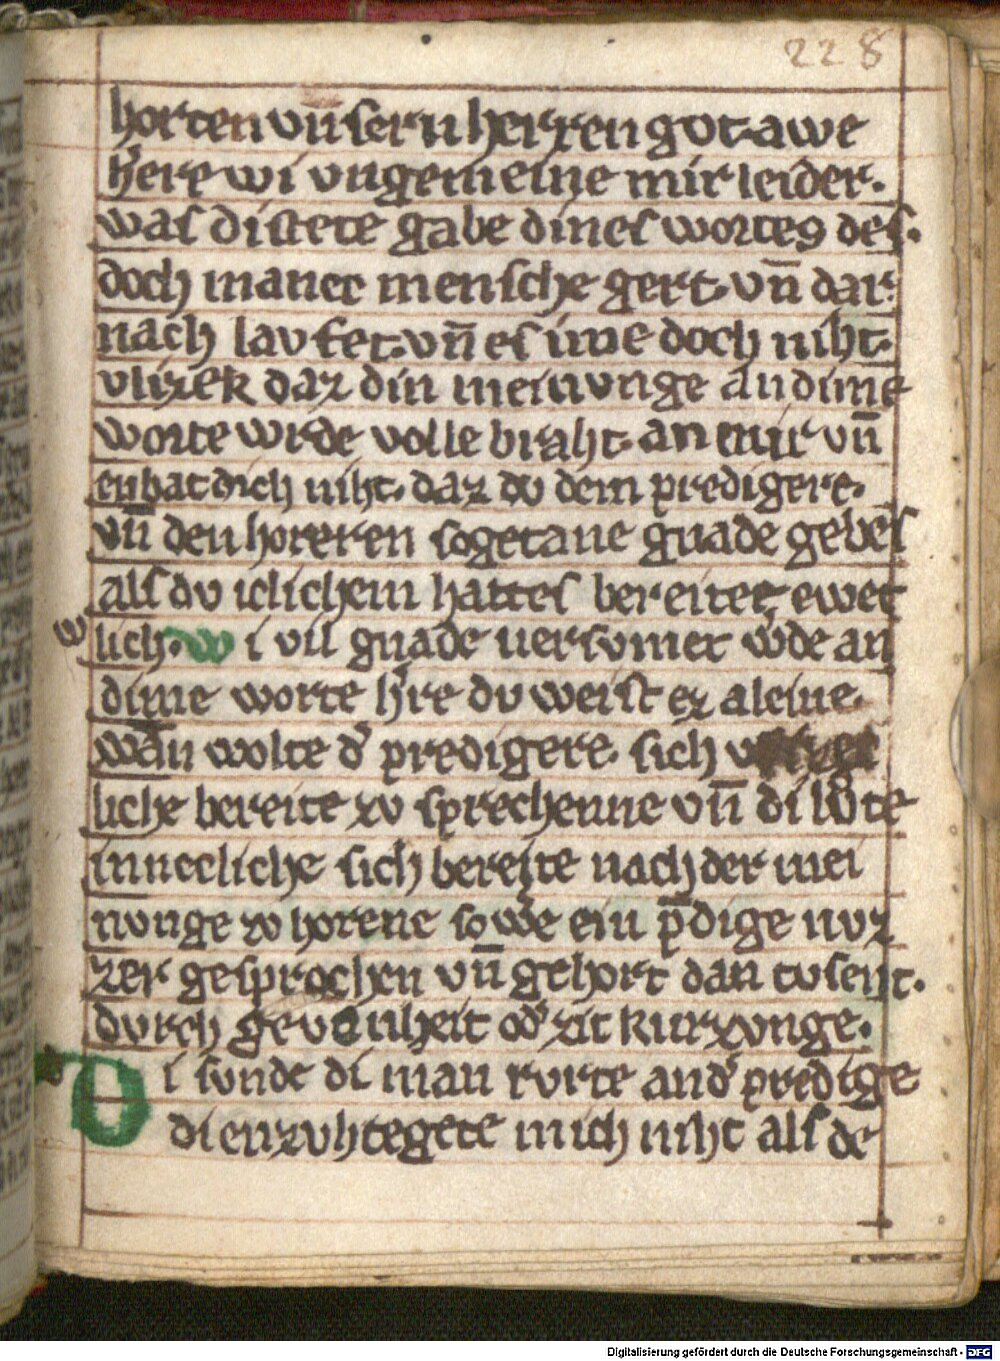 228
horten vn̄sern herren got. awe
h̓ere wi vngemeine mir leider.
was distete gabe dines wortes des.
doch maner mensche gert. vn̄ dar.
nach laufet. vn̄ es ime doch niht.
vlizek daz din meinunge an dime
worte wrde volle braht. an mir vn̄
enhat dich niht. daz dv dem predigere.
vn̄ den horeren sogetane gnade gebes
als dv iclichem hattes bereitet ewec
w
lich. wi vil gnade uersvmet w̓de an
dime worte h̓re dv weist ez aleine.
wan wolte d̓ predigere. sich
liche bereite zv sprechenne vn̄ di lv̊te
innecliche sich bereite nach der mei
nunge zv horene so w̓de ein p̄dige nvz
zer gesprochen vn̄ gehort dan tvsent.
dvrch gevonheit od̓ zit kurzvnge.
Di svnde di man rvrte and̓ predige
di enzvhtegete mich niht als de
Digitalisierung gefördert durch die Deutsche Forschungsgemeinschaft - DFG